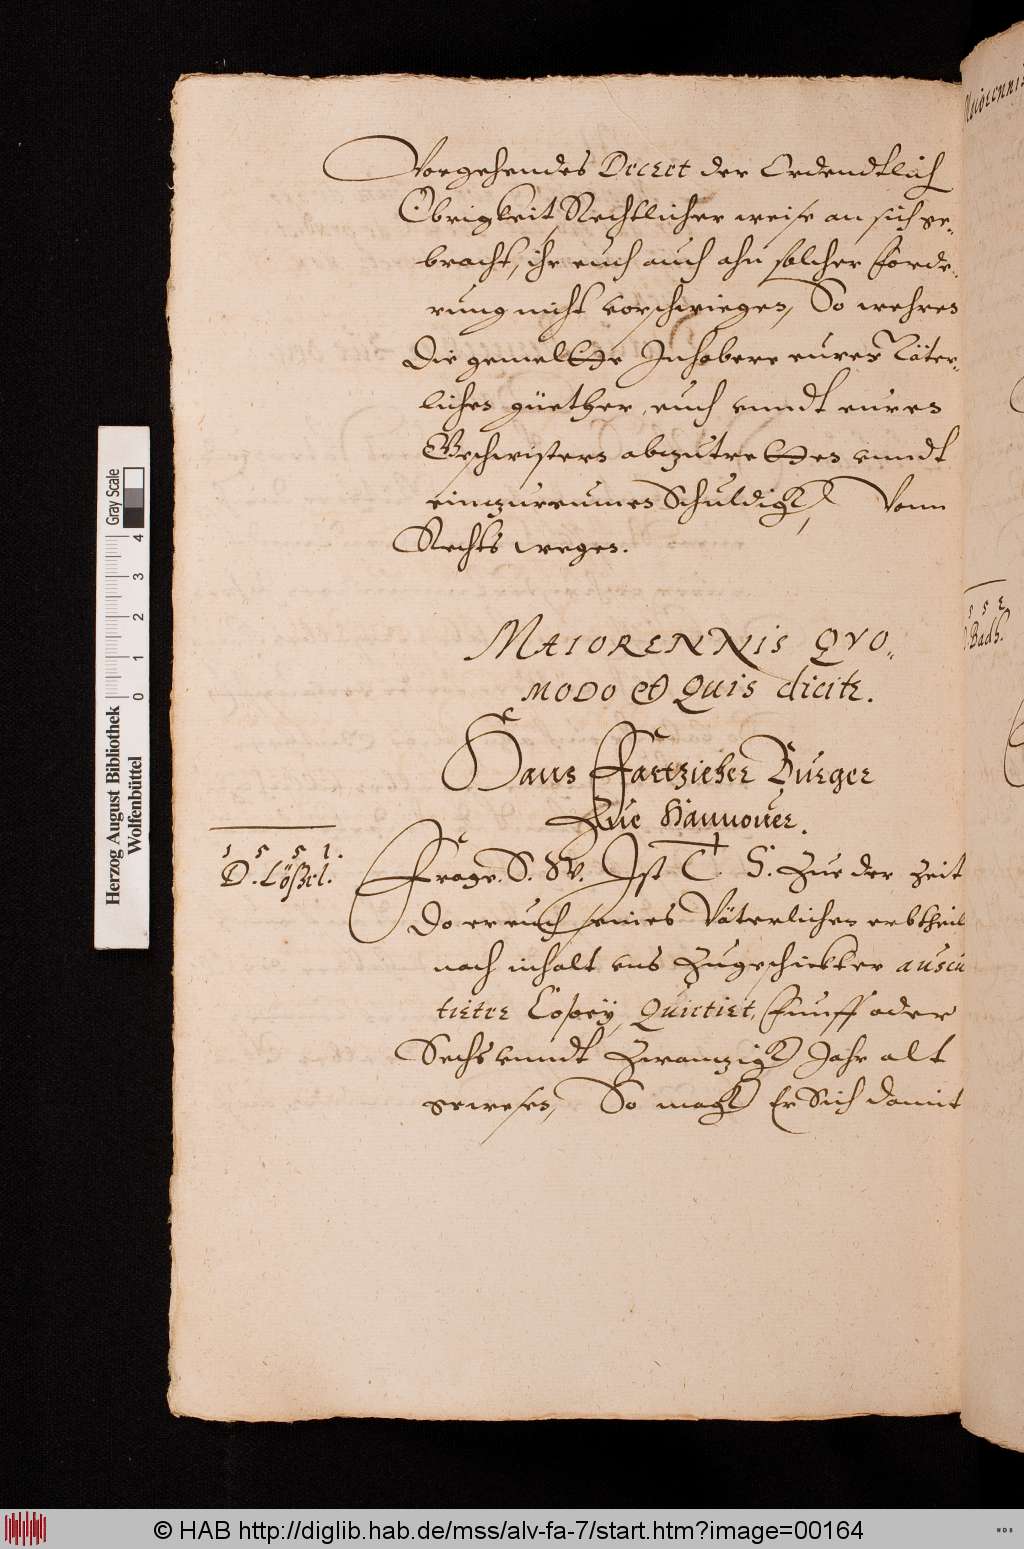 Vorgehendes Decret der Ordendtlich
Obrigkeit, Rechtlicher weise an sich ge-
bracht, ihr euch auch ahn solcher forde-
rung nicht vorschwiegen, So wehren
Die gemeltte Inhabere eures Väter-
lichen güether, euch vnndt euren
Geschwistern abzutretten vnndt
einzureumen Schuldigk, Vonn
Rechts wegen.
MAIORENNIS QVO-
MODO et Quis dicitr.
Hans Fartzieher Burger
Zue Hannouer.
1 5 5 1.
D. Lößel.
Frage. S. W. Ist T. S. Zue der Zeit
Do er euch seines Väterlichen erbtheil
nach inhalt vns Zugeschickter auscu
tierte Copey, Quirtiert, funff oder
Sechs vnndt Zwanzigk Jahr alt
gewesen, So magk Er Sich damit
Maiorennis
5 5 2
Bads.
Herzog August Bibliothek
Wolfenbüttel
Gray Scale
0 1 2 3 4
© HAB http://diglib.hab.de/mss/alv-fa-7/start.htm?image=00164